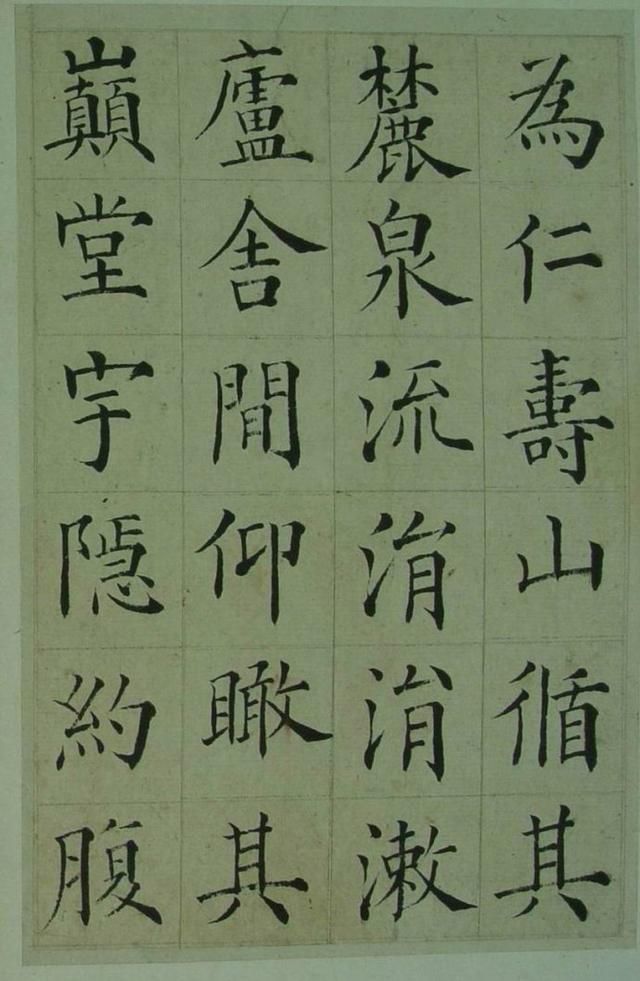 為仁壽山循其
麓泉流涓涓漱
廬舍間仰瞰其
巔堂宇隱約腹